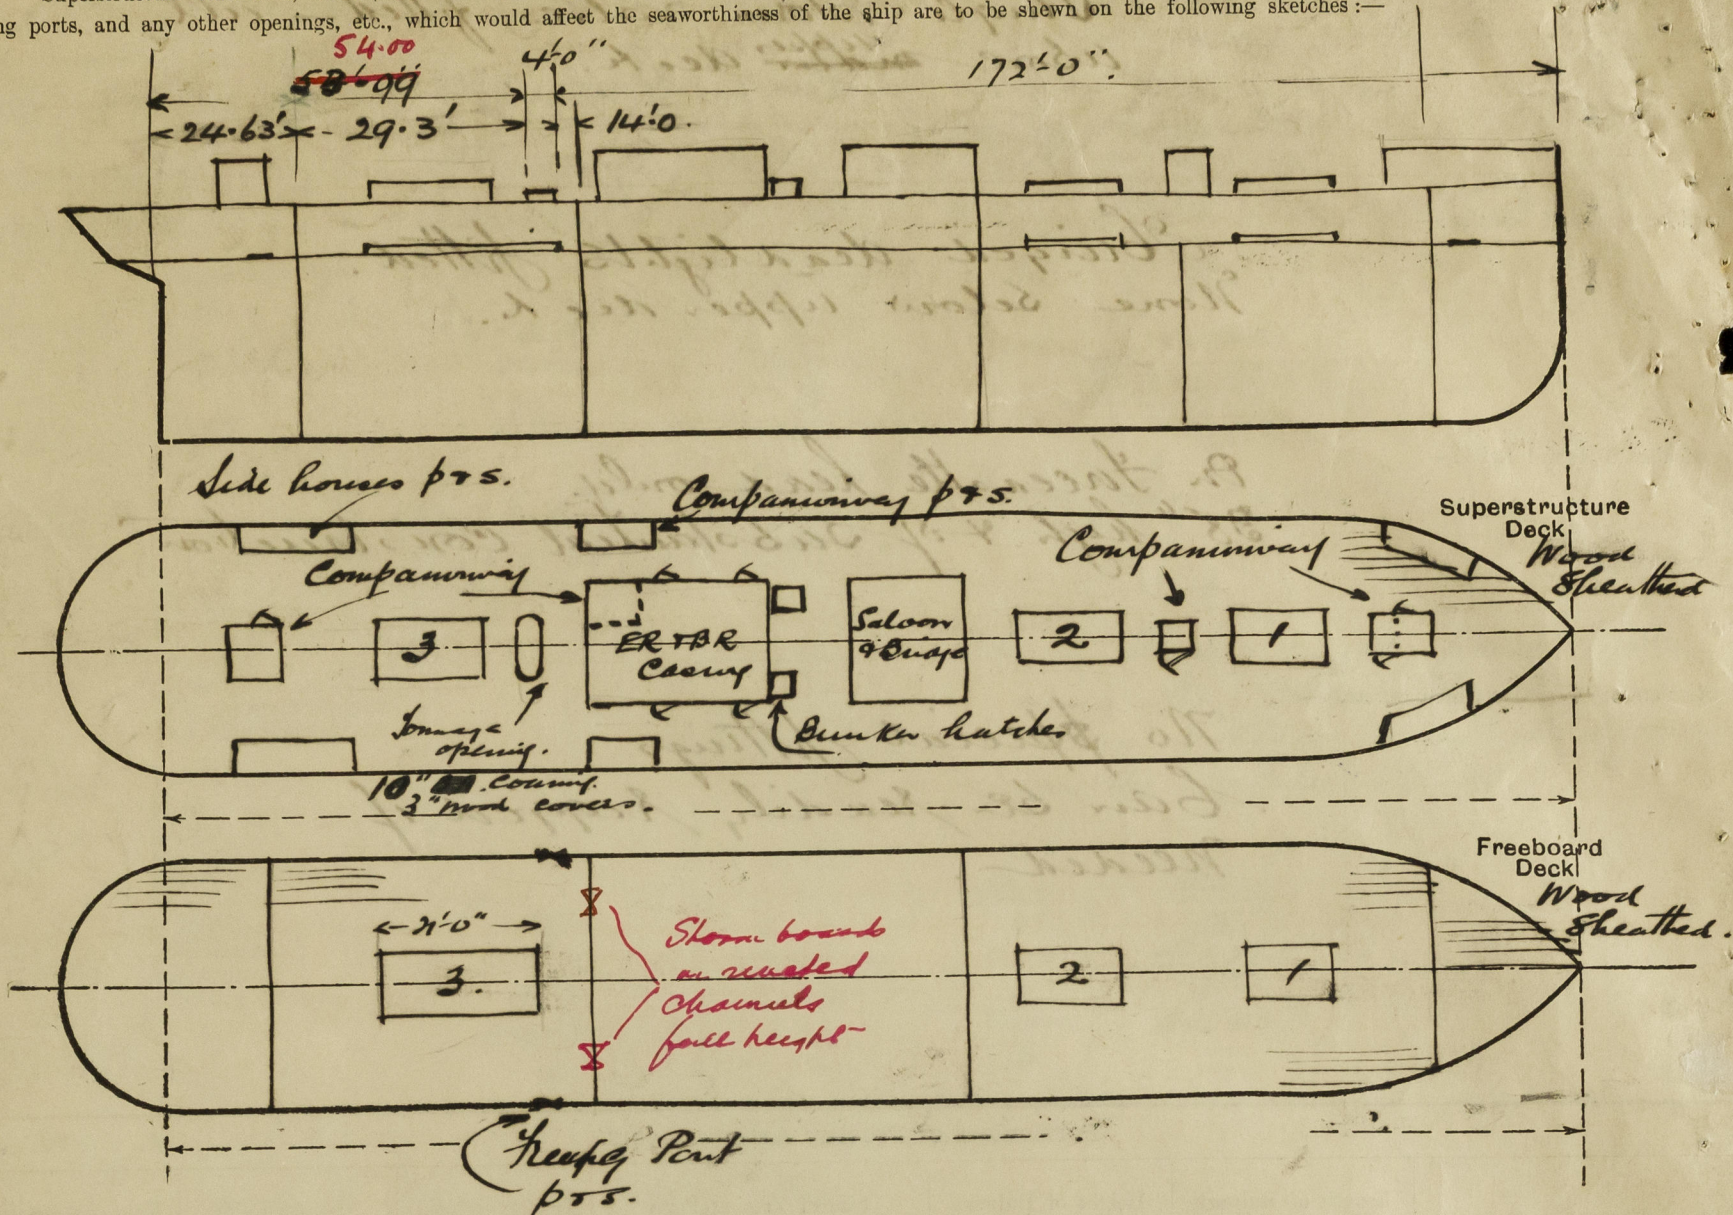 ng ports, and any other openings, etc., which would affect the seaworthiness of the ship are to be shewn on the following sketches :—
54.00
4'-0"
172'-0".
24.63'
29.3'
14'.0.
Side houses p & s.
Companionway p & s.
Superstructure
Deck
Wood
Sheathed
Companionway
Companionway
3
ER & BR
Casing
Saloon
& Bridge
2
1
Tonnage
opening.
Bunker hatches
10" coaming.
3" wood covers.
Freeboard
Deck
Wood
Sheathed.
21'-0"
3.
2
1
Storm boards
in riveted
channels
full height
Freeing Port
p & s.